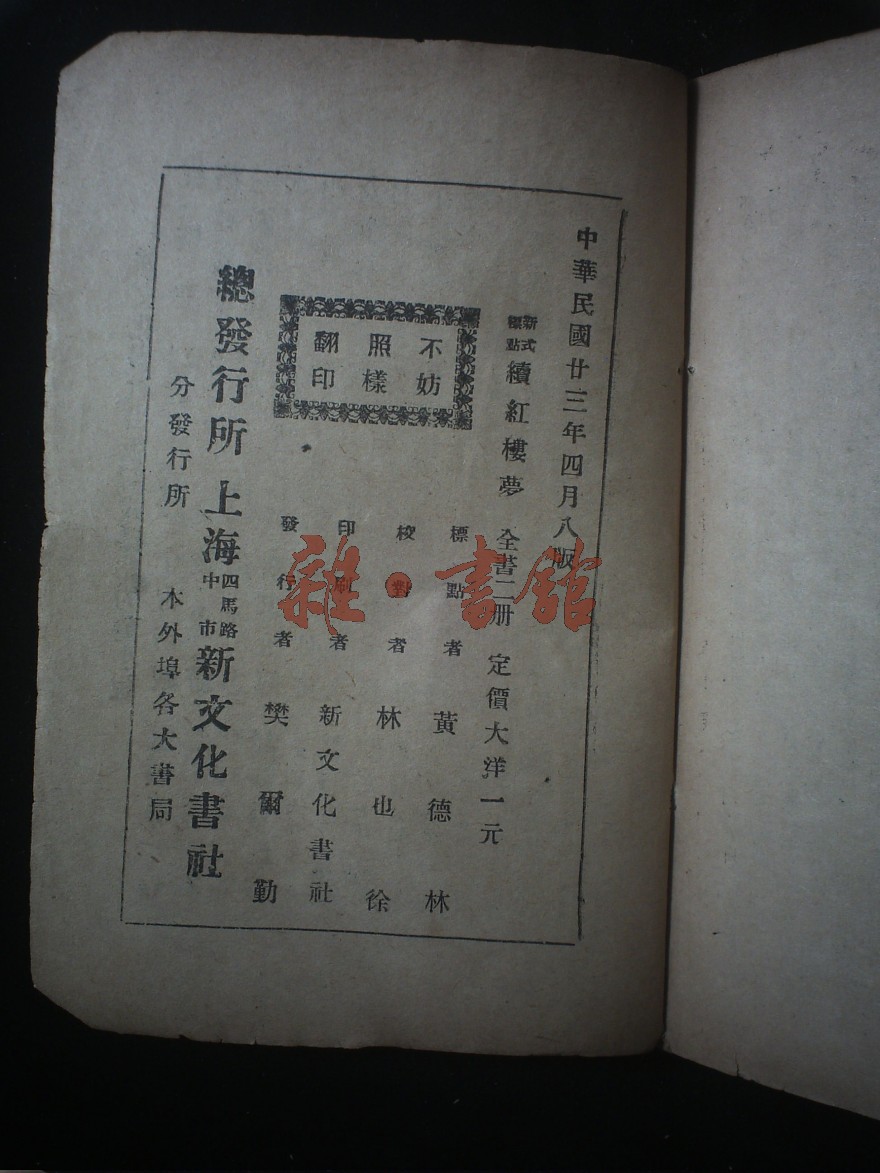 中華民國廿三年四月八版
新式標點 續紅樓夢 全書二册 定價大洋一元
不妨
照樣
翻印
標點者 黃德林
校對者 林也徐
印刷者 新文化書社
發行者 樊爾勤
總發行所 上海四馬路中市新文化書社
分發行所 本外埠各大書局
雜·書館